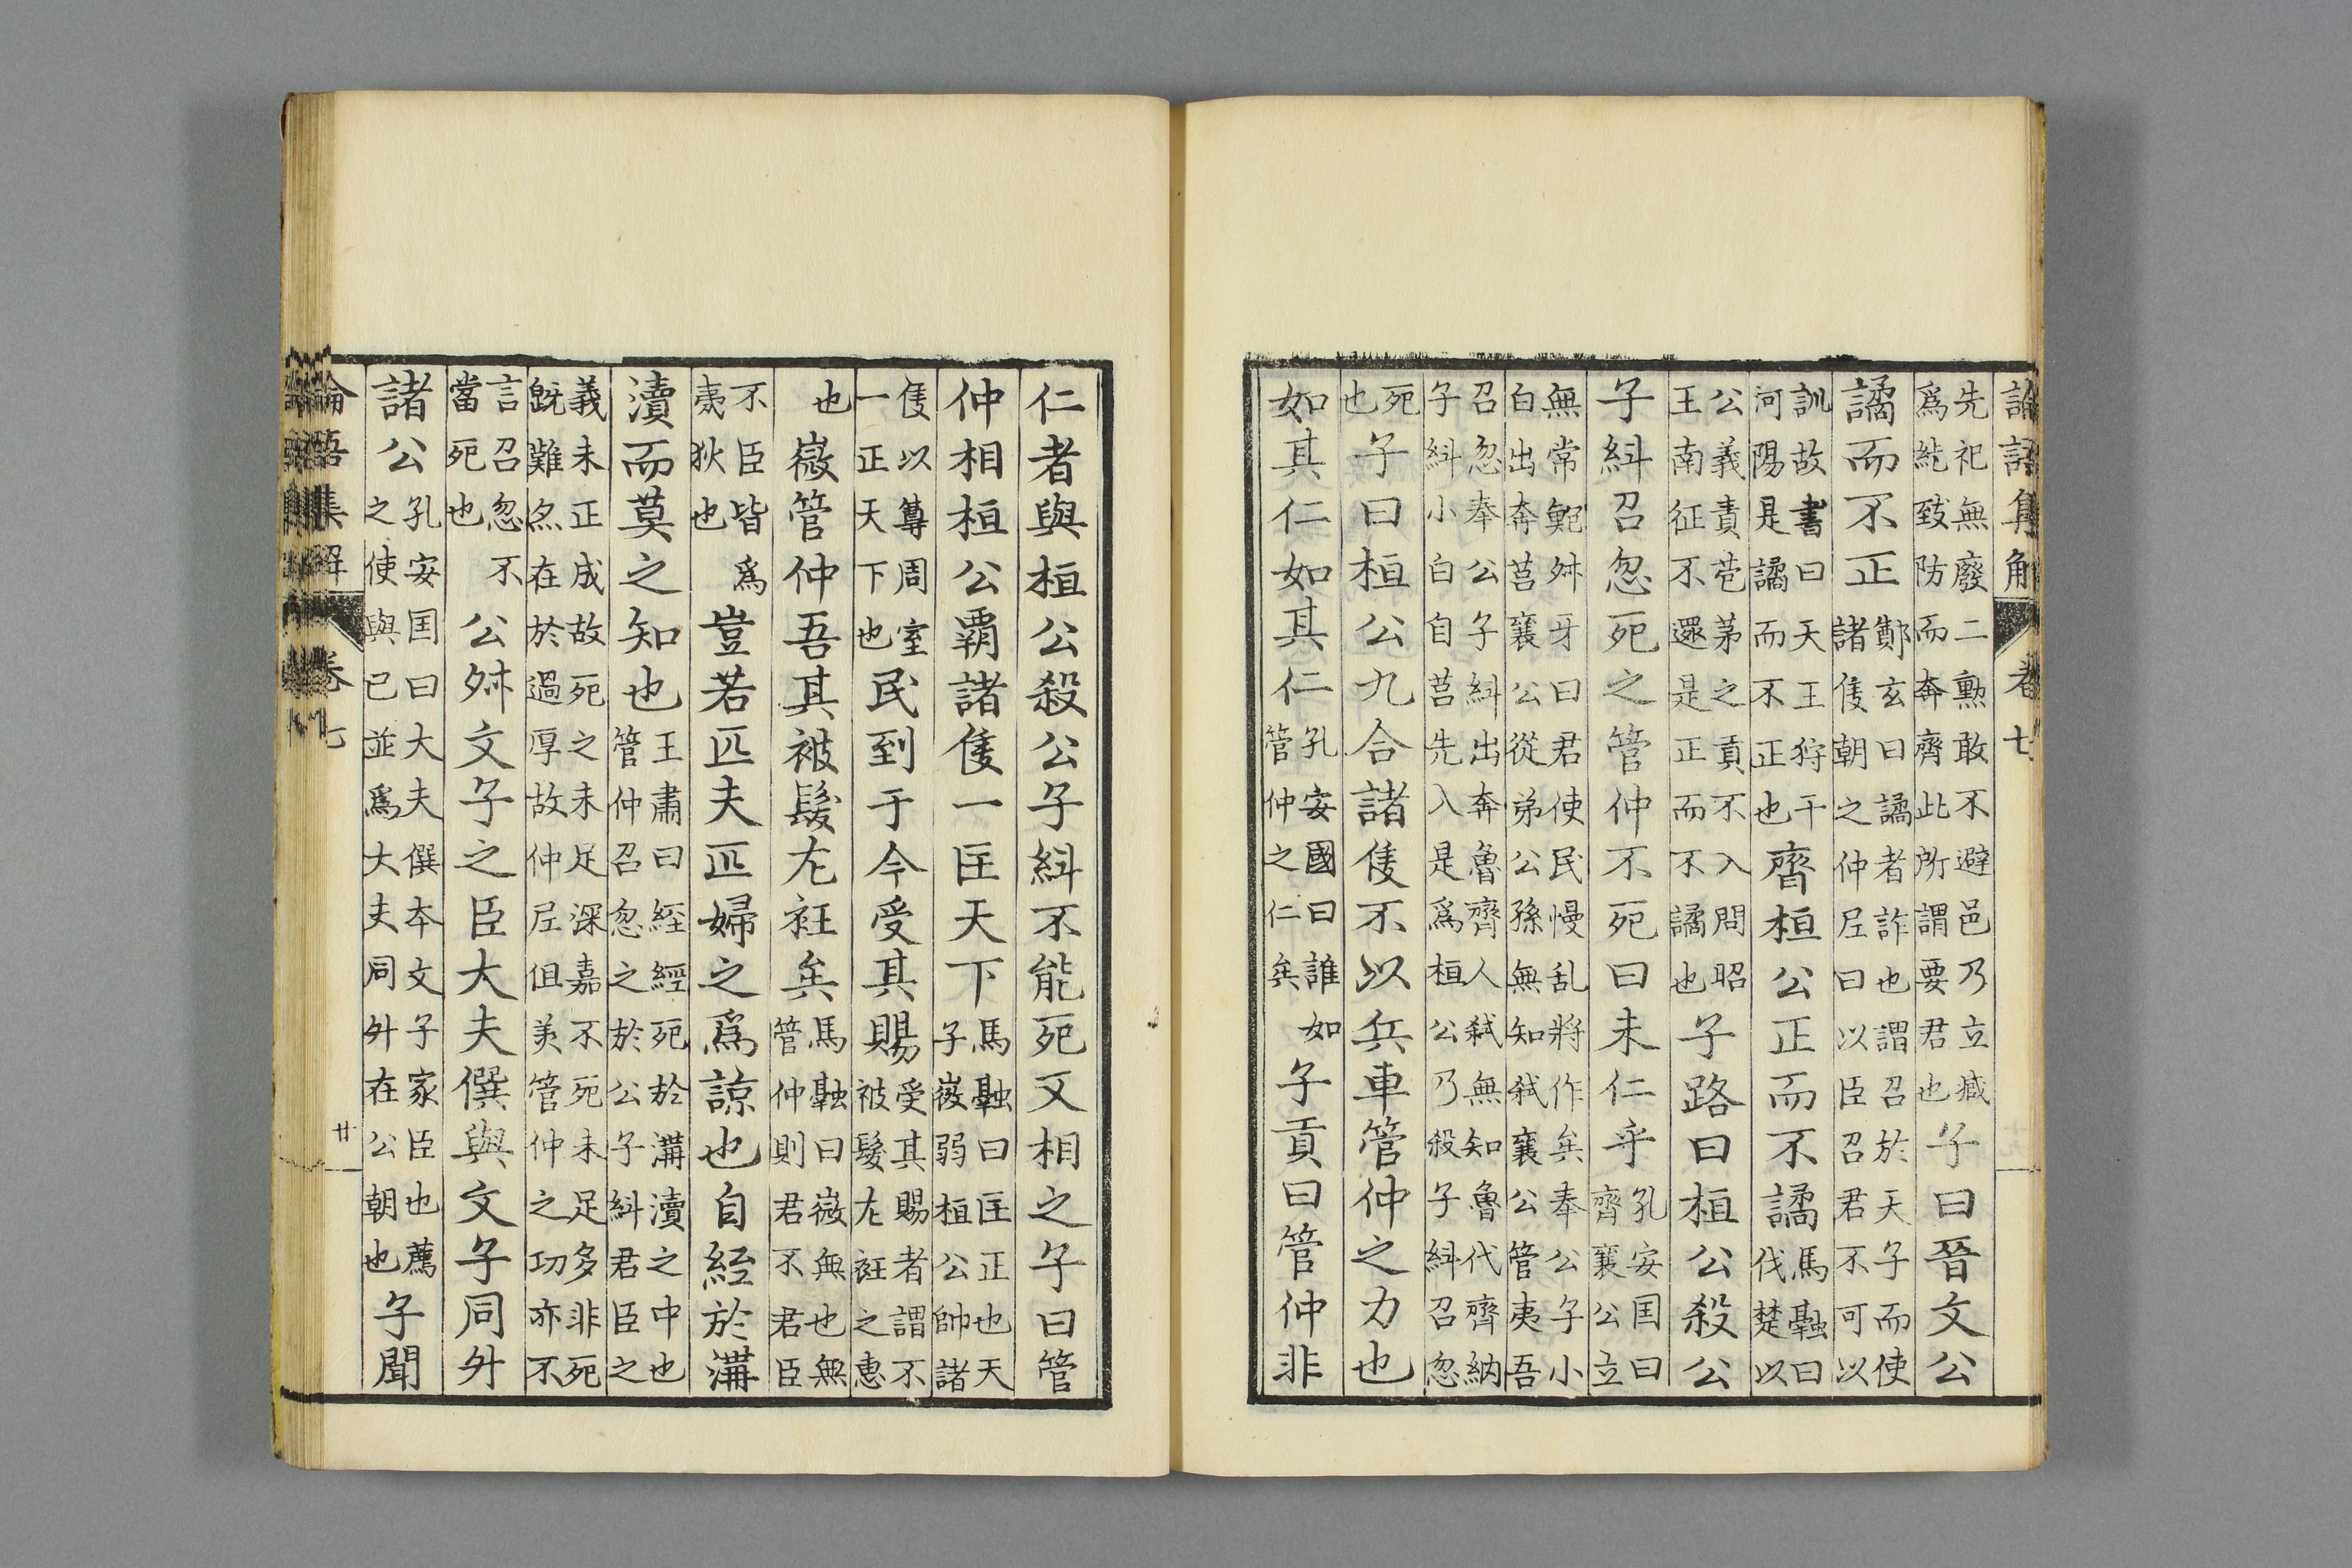 論語集解 卷七
先祀無廢二勲敢不避邑乃立臧
爲紇致防而奔齊此所謂要君也
子曰晉文公
譎而不正
鄭玄曰譎者詐也謂召於天子而使
諸侯朝之仲尼曰以臣召君不可以
訓故書曰天王狩干
河陽是譎而不正也
齊桓公正而不譎
馬融曰
伐楚以
公義責苞茅之貢不入問昭
王南征不還是正而不譎也
子路曰桓公殺公
子糾召忽死之管仲不死曰未仁乎
孔安囯曰
齊襄公立
無常鮑叔牙曰君使民慢乱將作矣奉公子小
白出奔莒襄公從弟公孫無知弑襄公管夷吾
召忽奉公子糾出奔魯齊人弑無知魯代齊納
子糾小白自莒先入是爲桓公乃殺子糾召忽
死
也
子曰桓公九合諸侯不以兵車管仲之力也
如其仁如其仁
孔安國曰誰如
管仲之仁矣
子貢曰管仲非
仁者與桓公殺公子糾不能死又相之子曰管
仲相桓公霸諸侯一匡天下
馬融曰匡正也天
子微弱桓公帥諸
侯以尊周室
一正天下也
民到于今受其賜
受其賜者謂不
被髮左衽之惠
也
微管仲吾其被髮左衽矣
馬融曰微無也無
管仲則君不君臣
不臣皆爲
夷狄也
豈若匹夫匹婦之爲諒也自經於溝
瀆而莫之知也
王肅曰經經死於溝瀆之中也
管仲召忽之於公子糾君臣之
義未正成故死之未足深嘉不死未足多非死
既難然在於過厚故仲尼但美管仲之功亦不
言召忽不
當死也
公叔文子之臣大夫僎與文子同升
諸公
孔安国曰大夫僎本文子家臣也薦
之使與己並爲大夫同升在公朝也
子聞
論語集解 卷七 廿